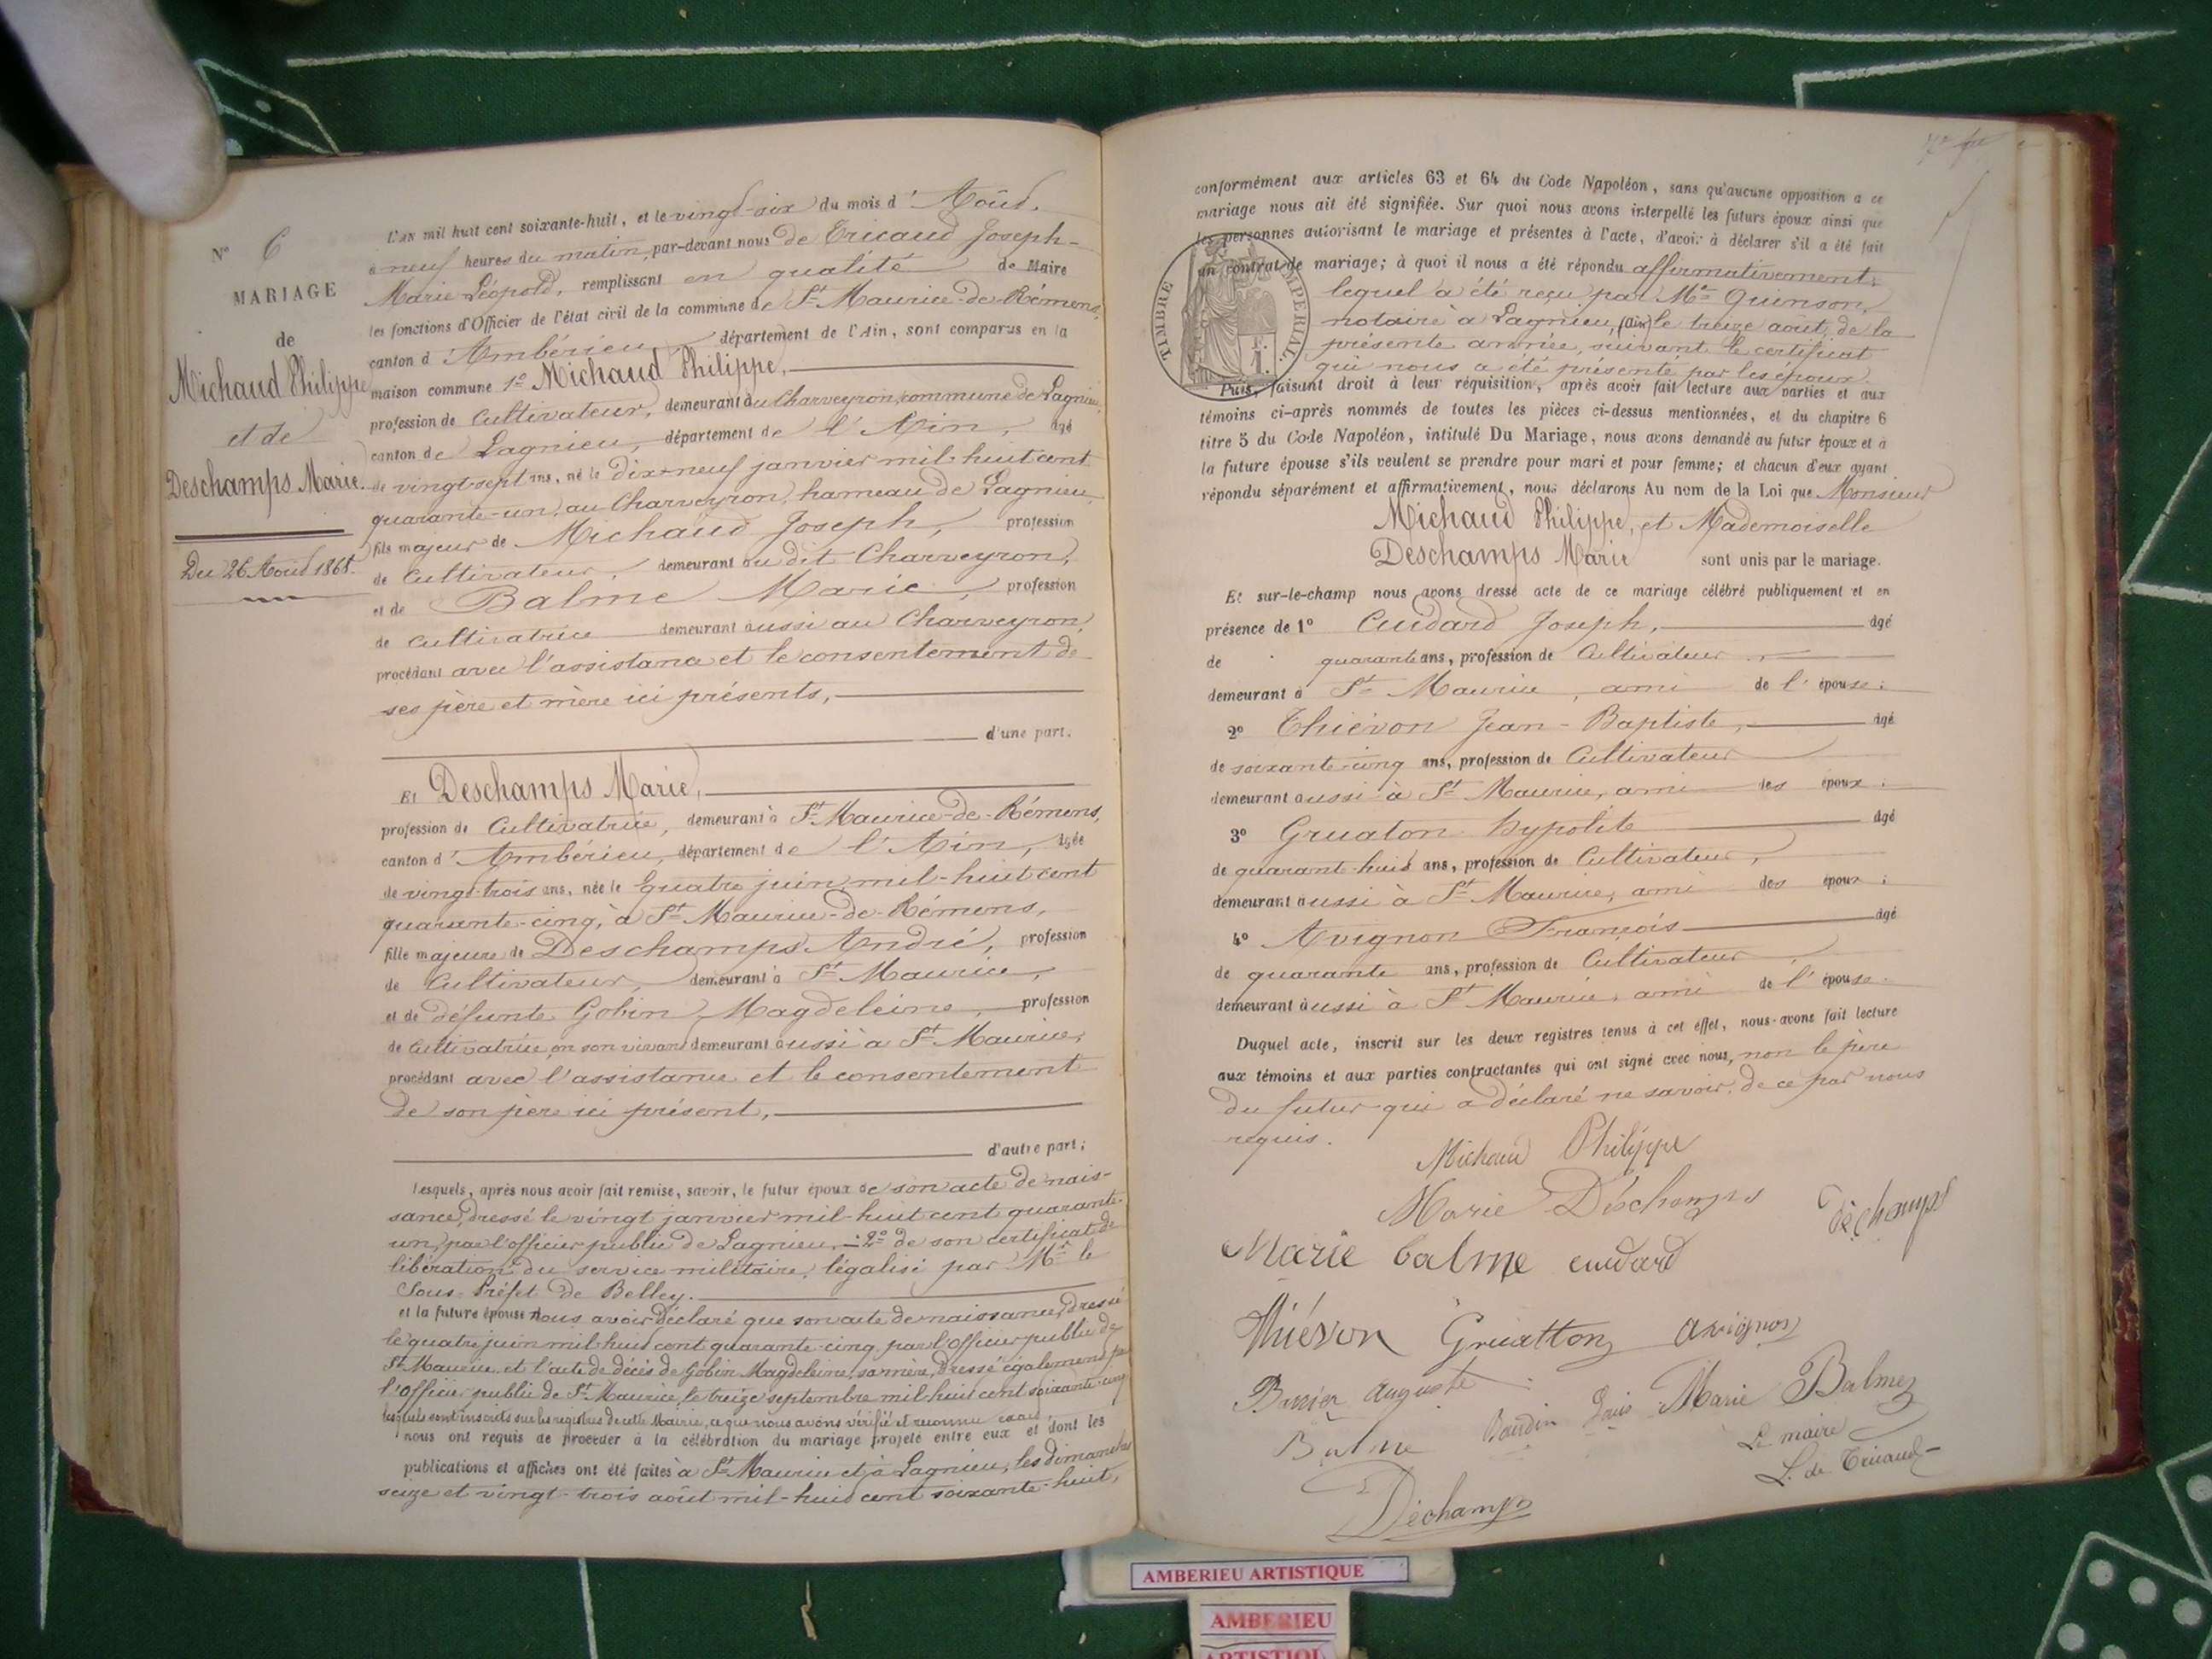 N° 6
MARIAGE
de
Michaud Philippe
et de
Deschamps Marie.
Du 26 Aoud 1868.
L'AN mil huit cent soixante-huit, et le vingt-six du mois d'Aoûd.
à neuf heures du matin, par-devant nous de Tricaud Joseph-
Marie Léopold, remplissant en qualité de Maire
les fonctions d'Officier de l'état civil de la commune de St Maurice-de-Rémens,
canton d'Ambérieu, département de l'Ain, sont comparus en la
maison commune 1° Michaud Philippe,
profession de Cultivateur, demeurant au Charveyron, commune de Lagnieu,
canton de Lagnieu, département de l'Ain, âgé
de vingt-sept ans, né le dix-neuf janvier mil-huit cent
quarante-un, au Charveyron, hameau de Lagnieu,
fils majeur de Michaud Joseph, profession
de Cultivateur, demeurant au dit Charveyron,
et de Balme Marie, profession
de cultivatrice demeurant aussi au Charveyron,
procédant avec l'assistance et le consentement de
ses père et mère ici présents,
d'une part.
Et Deschamps Marie,
profession de Cultivatrice, demeurant à St Maurice-de-Rémens,
canton d'Ambérieu, département de l'Ain, âgée
de vingt-trois ans, née le quatre juin mil-huit cent
quarante-cinq, à St Maurice-de-Rémens,
fille majeure de Deschamps André, profession
de Cultivateur, demeurant à St Maurice,
et de défunte Gobin Magdeleine, profession
de Cultivatrice en son vivant demeurant aussi à St Maurice,
procédant avec l'assistance et le consentement
de son père ici présent,
d'autre part;
Lesquels, après nous avoir fait remise, savoir, le futur époux de son acte de nais-
sance, dressé le vingt janvier mil-huit cent quarante-
un, par l'officier public de Lagnieu, - 2° de son certificat de
libération du service militaire, légalisé par Mr le
Sous-Préfet de Belley.
et la future épouse nous avoir déclaré que son acte de naissance, dressé
le quatre juin mil-huit cent quarante-cinq par l'Officier public de
St Maurice et l'acte de décès de Gobin Magdeleine, sa mère, dressé également par
l'Officier public de St Maurice, le treize septembre mil-huit cent soixante-cinq
lesquels sont inscrits sur les registres de cette Mairie, ce que nous avons vérifié et reconnu exact
nous ont requis de procéder à la célébration du mariage projeté entre eux et dont les
publications et affiches ont été faites à St Maurice et à Lagnieu, les dimanches
seize et vingt-trois août mil-huit cent soixante-huit,
conformément aux articles 63 et 64 du Code Napoléon, sans qu'aucune opposition a ce
mariage nous ait été signifiée. Sur quoi nous avons interpellé les futurs époux ainsi que
les personnes autorisant le mariage et présentes à l'acte, d'avoir à déclarer s'il a été fait
un contrat de mariage; à quoi il nous a été répondu affirmativement:
lequel a été reçu par Me Quinson,
notaire à Lagnieu, (Ain) le treize août, de la
présente année, suivant le certificat
qui nous a été présenté par les époux.
TIMBRE IMPERIAL.
Puis, faisant droit à leur réquisition, après avoir fait lecture aux parties et aux
témoins ci-après nommés de toutes les pièces ci-dessus mentionnées, et du chapitre 6
titre 5 du Code Napoléon, intitulé Du Mariage, nous avons demandé au futur époux et à
la future épouse s'ils veulent se prendre pour mari et pour femme; et chacun d'eux ayant
répondu séparément et affirmativement, nous déclarons Au nom de la Loi que Monsieur
Michaud Philippe, et Mademoiselle
Deschamps Marie sont unis par le mariage.
Et sur-le-champ nous avons dressé acte de ce mariage célébré publiquement et en
présence de 1° Cudard Joseph, âgé
de quarante ans, profession de Cultivateur
demeurant à St Maurice, ami de l'épouse;
2° Thiévon Jean-Baptiste, âgé
de soixante-cinq ans, profession de Cultivateur
demeurant aussi à St Maurice, ami des époux;
3° Gruaton Hypolite âgé
de quarante-huit ans, profession de Cultivateur,
demeurant aussi à St Maurice, ami des époux;
4° Avignon François âgé
de quarante ans, profession de Cultivateur,
demeurant aussi à St Maurice, ami de l'épouse.
Duquel acte, inscrit sur les deux registres tenus à cet effet, nous avons fait lecture
aux témoins et aux parties contractantes qui ont signé avec nous, non le père
du futur qui a déclaré ne savoir, de ce par nous
requis.
Michaud Philippe
Marie Déschamps
Déchamps
Marie balme cudard
Thiévon Gruatton avignon
auguste
Baudin Louis Marie Balme
Balme
Le maire
L. de Tricaud
Déchamps
AMBERIEU ARTISTIQUE
AMBERIEU